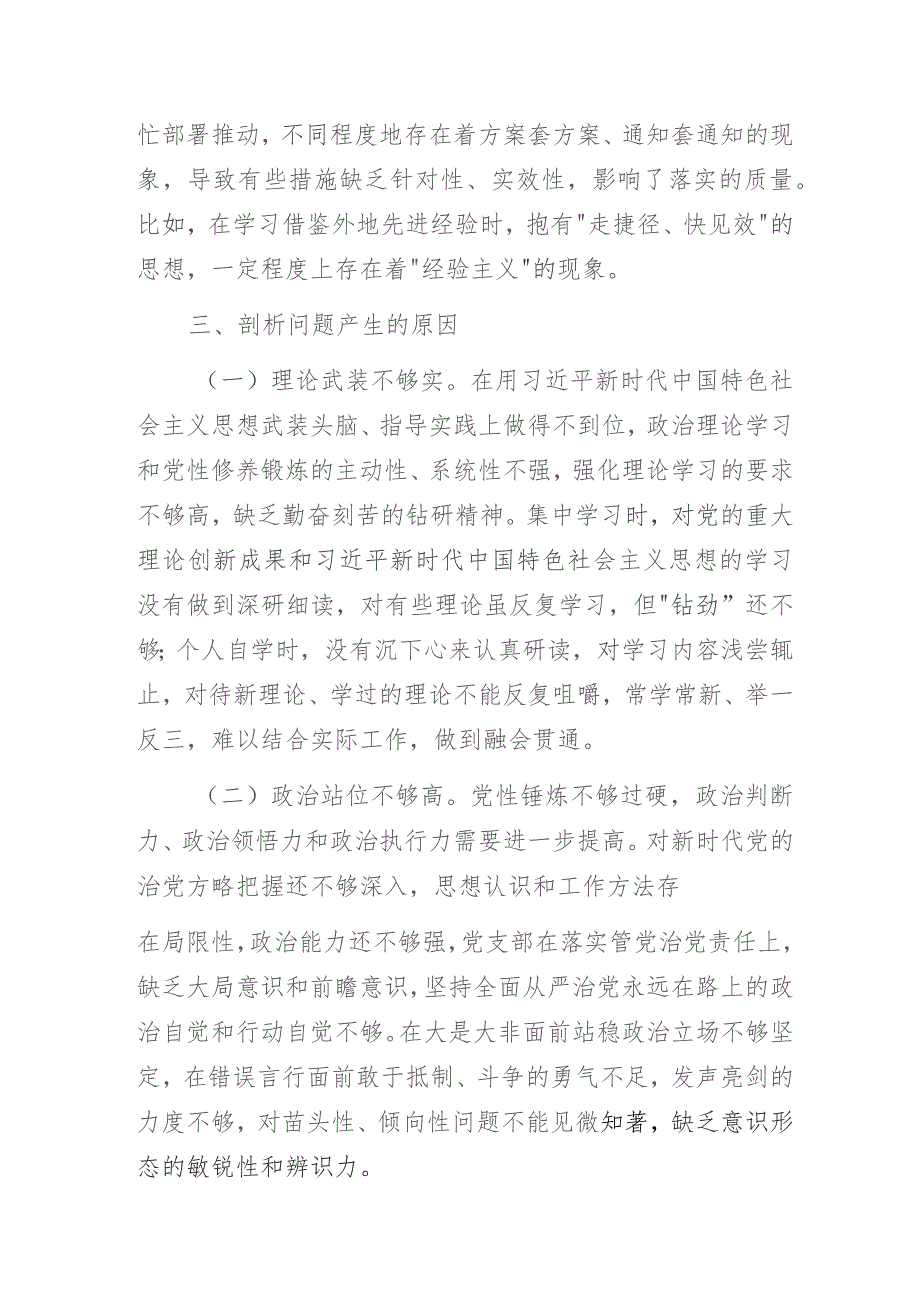 忙部署推动，不同程度地存在着方案套方案、通知套通知的现
象，导致有些措施缺乏针对性、实效性，影响了落实的质量。
比如，在学习借鉴外地先进经验时，抱有"走捷径、快见效"的
思想，一定程度上存在着"经验主义"的现象。
三、剖析问题产生的原因
（一）理论武装不够实。在用习近平新时代中国特色社
会主义思想武装头脑、指导实践上做得不到位，政治理论学习
和党性修养锻炼的主动性、系统性不强，强化理论学习的要求
不够高，缺乏勤奋刻苦的钻研精神。集中学习时，对党的重大
理论创新成果和习近平新时代中国特色社会主义思想的学习
没有做到深研细读，对有些理论虽反复学习，但"钻劲”还不
够；个人自学时，没有沉下心来认真研读，对学习内容浅尝辄
止，对待新理论、学过的理论不能反复咀嚼，常学常新、举一
反三，难以结合实际工作，做到融会贯通。
（二）政治站位不够高。党性锤炼不够过硬，政治判断
力、政治领悟力和政治执行力需要进一步提高。对新时代党的
治党方略把握还不够深入，思想认识和工作方法存
在局限性，政治能力还不够强，党支部在落实管党治党责任上，
缺乏大局意识和前瞻意识，坚持全面从严治党永远在路上的政
治自觉和行动自觉不够。在大是大非面前站稳政治立场不够坚
定，在错误言行面前敢于抵制、斗争的勇气不足，发声亮剑的
力度不够，对苗头性、倾向性问题不能见微知著，缺乏意识形
态的敏锐性和辨识力。